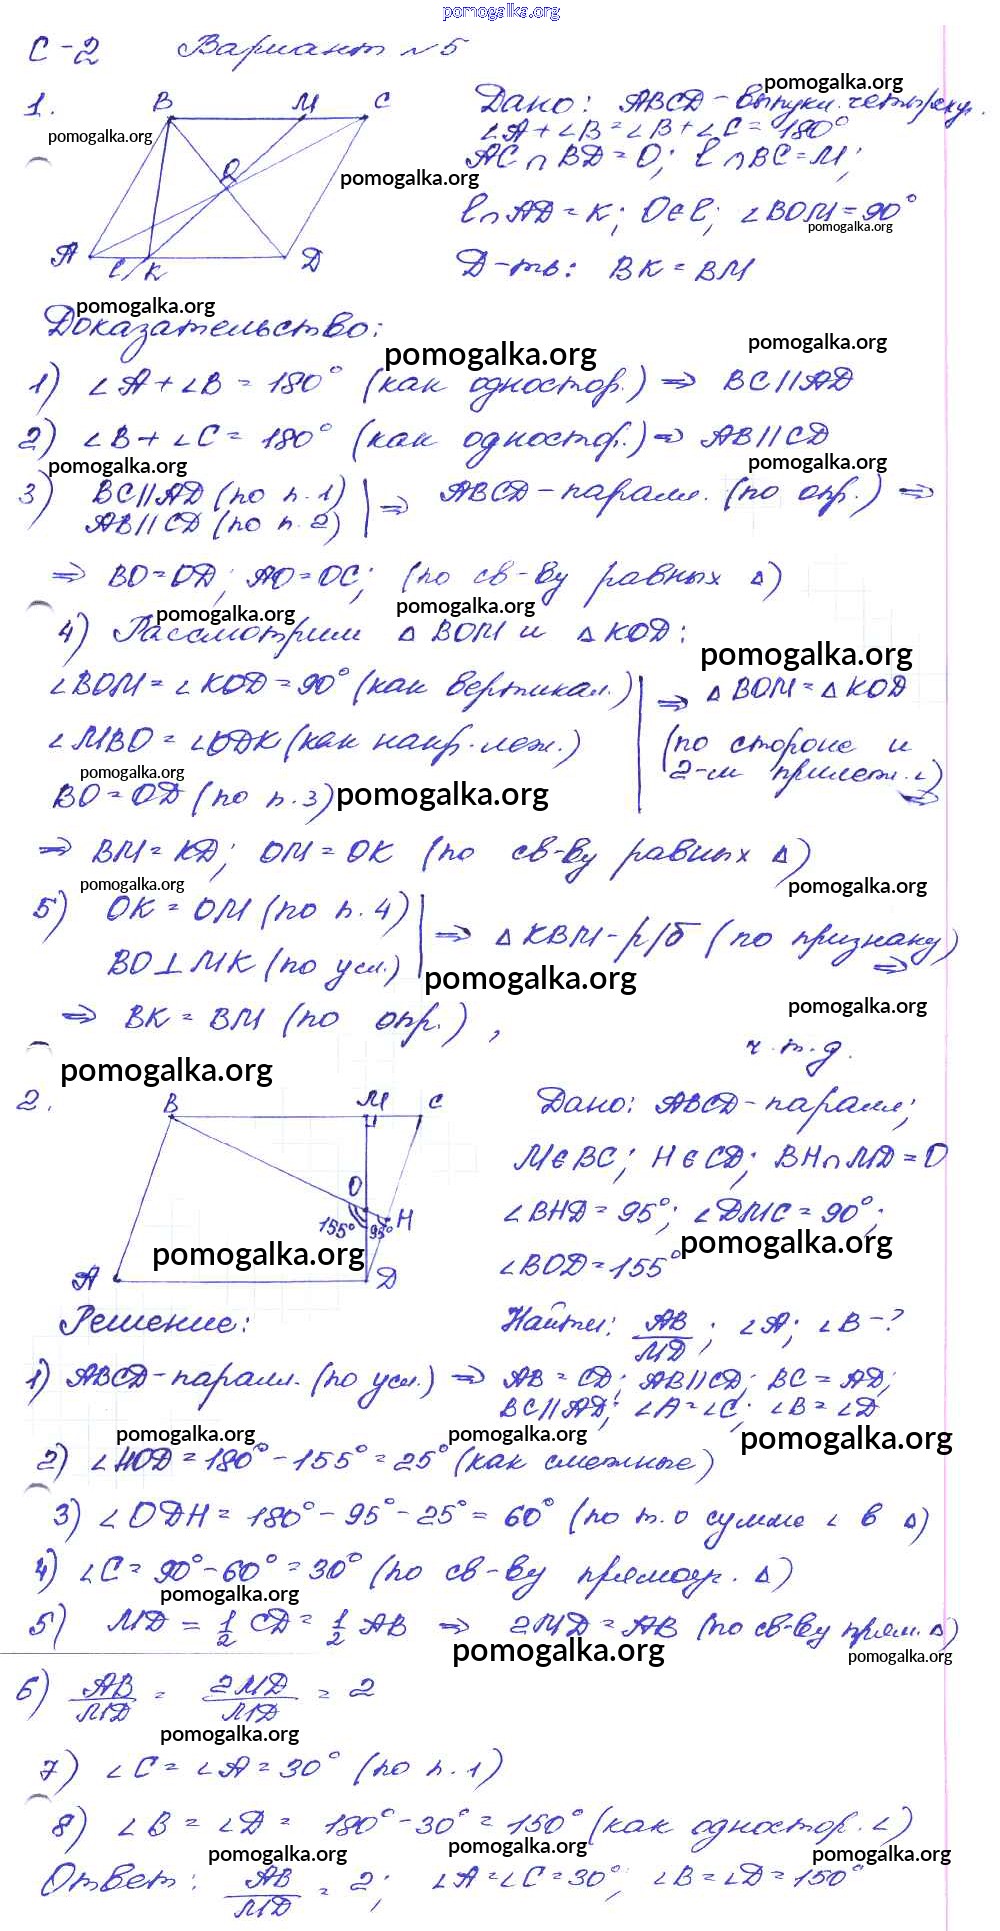 pomogalka.org
С-2 Вариант №5
1. B M C Дано: ABCD - выпукл. четырехуг.
pomogalka.org
∠A + ∠B = ∠B + ∠C = 180°
pomogalka.org
AC ∩ BD = O; l ∩ BC = M;
O pomogalka.org
l ∩ AD = K; O ∈ l; ∠BOM = 90°
pomogalka.org
A l K D Д-ть: BK = BM
pomogalka.org
Доказательство:
pomogalka.org pomogalka.org
1) ∠A + ∠B = 180° (как одностор.) ⇒ BC || AD
2) ∠B + ∠C = 180° (как одностор.) ⇒ AB || CD
pomogalka.org pomogalka.org
3) BC || AD (по п. 1) | ⇒ ABCD - паралл. (по опр.) ⇒
AB || CD (по п. 2)
⇒ BO = OD; AO = OC; (по св-ву равных Δ)
pomogalka.org pomogalka.org
4) Рассмотрим Δ BOM и Δ KOD:
pomogalka.org
∠BOM = ∠KOD = 90° (как вертикал.) | ⇒ Δ BOM = Δ KOD
∠MBO = ∠ODK (как накр. леж.) (по стороне и
pomogalka.org 2-м прилеж. ∠)
BO = OD (по п. 3) pomogalka.org ⇒
⇒ BM = KD; OM = OK (по св-ву равных Δ)
pomogalka.org pomogalka.org
5) OK = OM (по п. 4) | ⇒ Δ KBM - р/б (по признаку)
BO ⊥ MK (по усл.) ⇒
pomogalka.org
⇒ BK = BM (по опр.), pomogalka.org
ч.т.д.
pomogalka.org
2. B M C Дано: ABCD - паралл;
M ∈ BC; H ∈ CD; BH ∩ MD = O
O H 155° 95° ∠BHD = 95°; ∠DMC = 90°;
pomogalka.org pomogalka.org
A D ∠BOD = 155°
Решение: Найти: AB/MD; ∠A; ∠B - ?
1) ABCD - паралл. (по усл.) ⇒ AB = CD; AB || CD; BC = AD;
BC || AD; ∠A = ∠C; ∠B = ∠D
pomogalka.org pomogalka.org pomogalka.org
2) ∠HOD = 180° - 155° = 25° (как смежные)
3) ∠ODH = 180° - 95° - 25° = 60° (по т. о сумме ∠ в Δ)
4) ∠C = 90° - 60° = 30° (по св-ву прямоуг. Δ)
pomogalka.org
5) MD = 1/2 CD = 1/2 AB ⇒ 2MD = AB (по св-ву прям. Δ)
pomogalka.org pomogalka.org
6) AB/MD = 2MD/MD = 2
pomogalka.org
7) ∠C = ∠A = 30° (по п. 1)
8) ∠B = ∠D = 180° - 30° = 150° (как одностор. ∠)
pomogalka.org pomogalka.org pomogalka.org
Ответ: AB/MD = 2; ∠A = ∠C = 30°; ∠B = ∠D = 150°